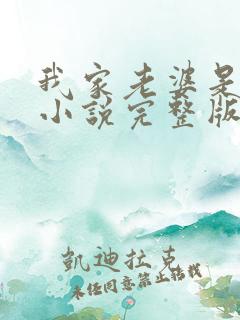 我家老婆呆
小說完整版
凱迪拉克
未经同意禁止转载